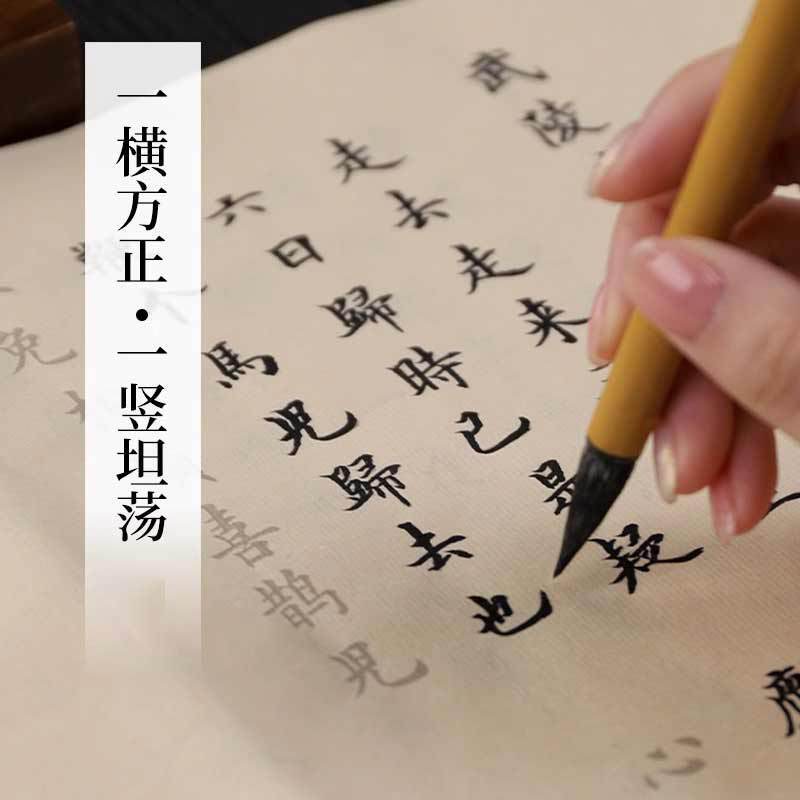 一横方正·一竖坦荡
武陵
走去走来
六日歸時已是疑
个馬兒歸去也
免
喜鹊兒
應
心